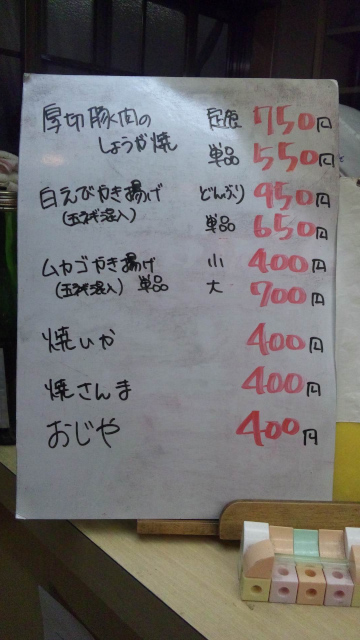 厚切豚肉の 定食 750円
しょうが焼 単品 550円
白えびかき揚げ どんぶり 950円
(玉ネギ混入) 単品 650円
ムカゴかき揚げ 小 400円
(玉ネギ混入) 単品 大 700円
焼いか 400円
焼さんま 400円
おじや 400円